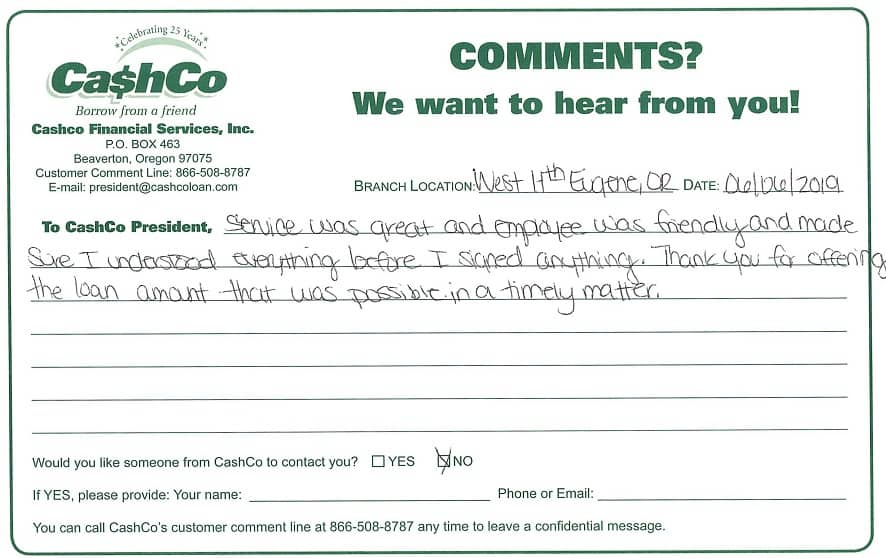 Celebrating 25 Years
Ca$hCo
Borrow from a friend
Cashco Financial Services, Inc.
P.O. BOX 463
Beaverton, Oregon 97075
Customer Comment Line: 866-508-8787
E-mail: president@cashcoloan.com
COMMENTS?
We want to hear from you!
BRANCH LOCATION: West 11th Eugene, OR DATE: 06/06/2019
To CashCo President, Service was great and employee was friendly and made
Sure I understood everything before I signed anything. Thank you for offering
the loan amant that was possible in a timely matter.
Would you like someone from CashCo to contact you? ☐ YES ☒ NO
If YES, please provide: Your name: Phone or Email:
You can call CashCo's customer comment line at 866-508-8787 any time to leave a confidential message.